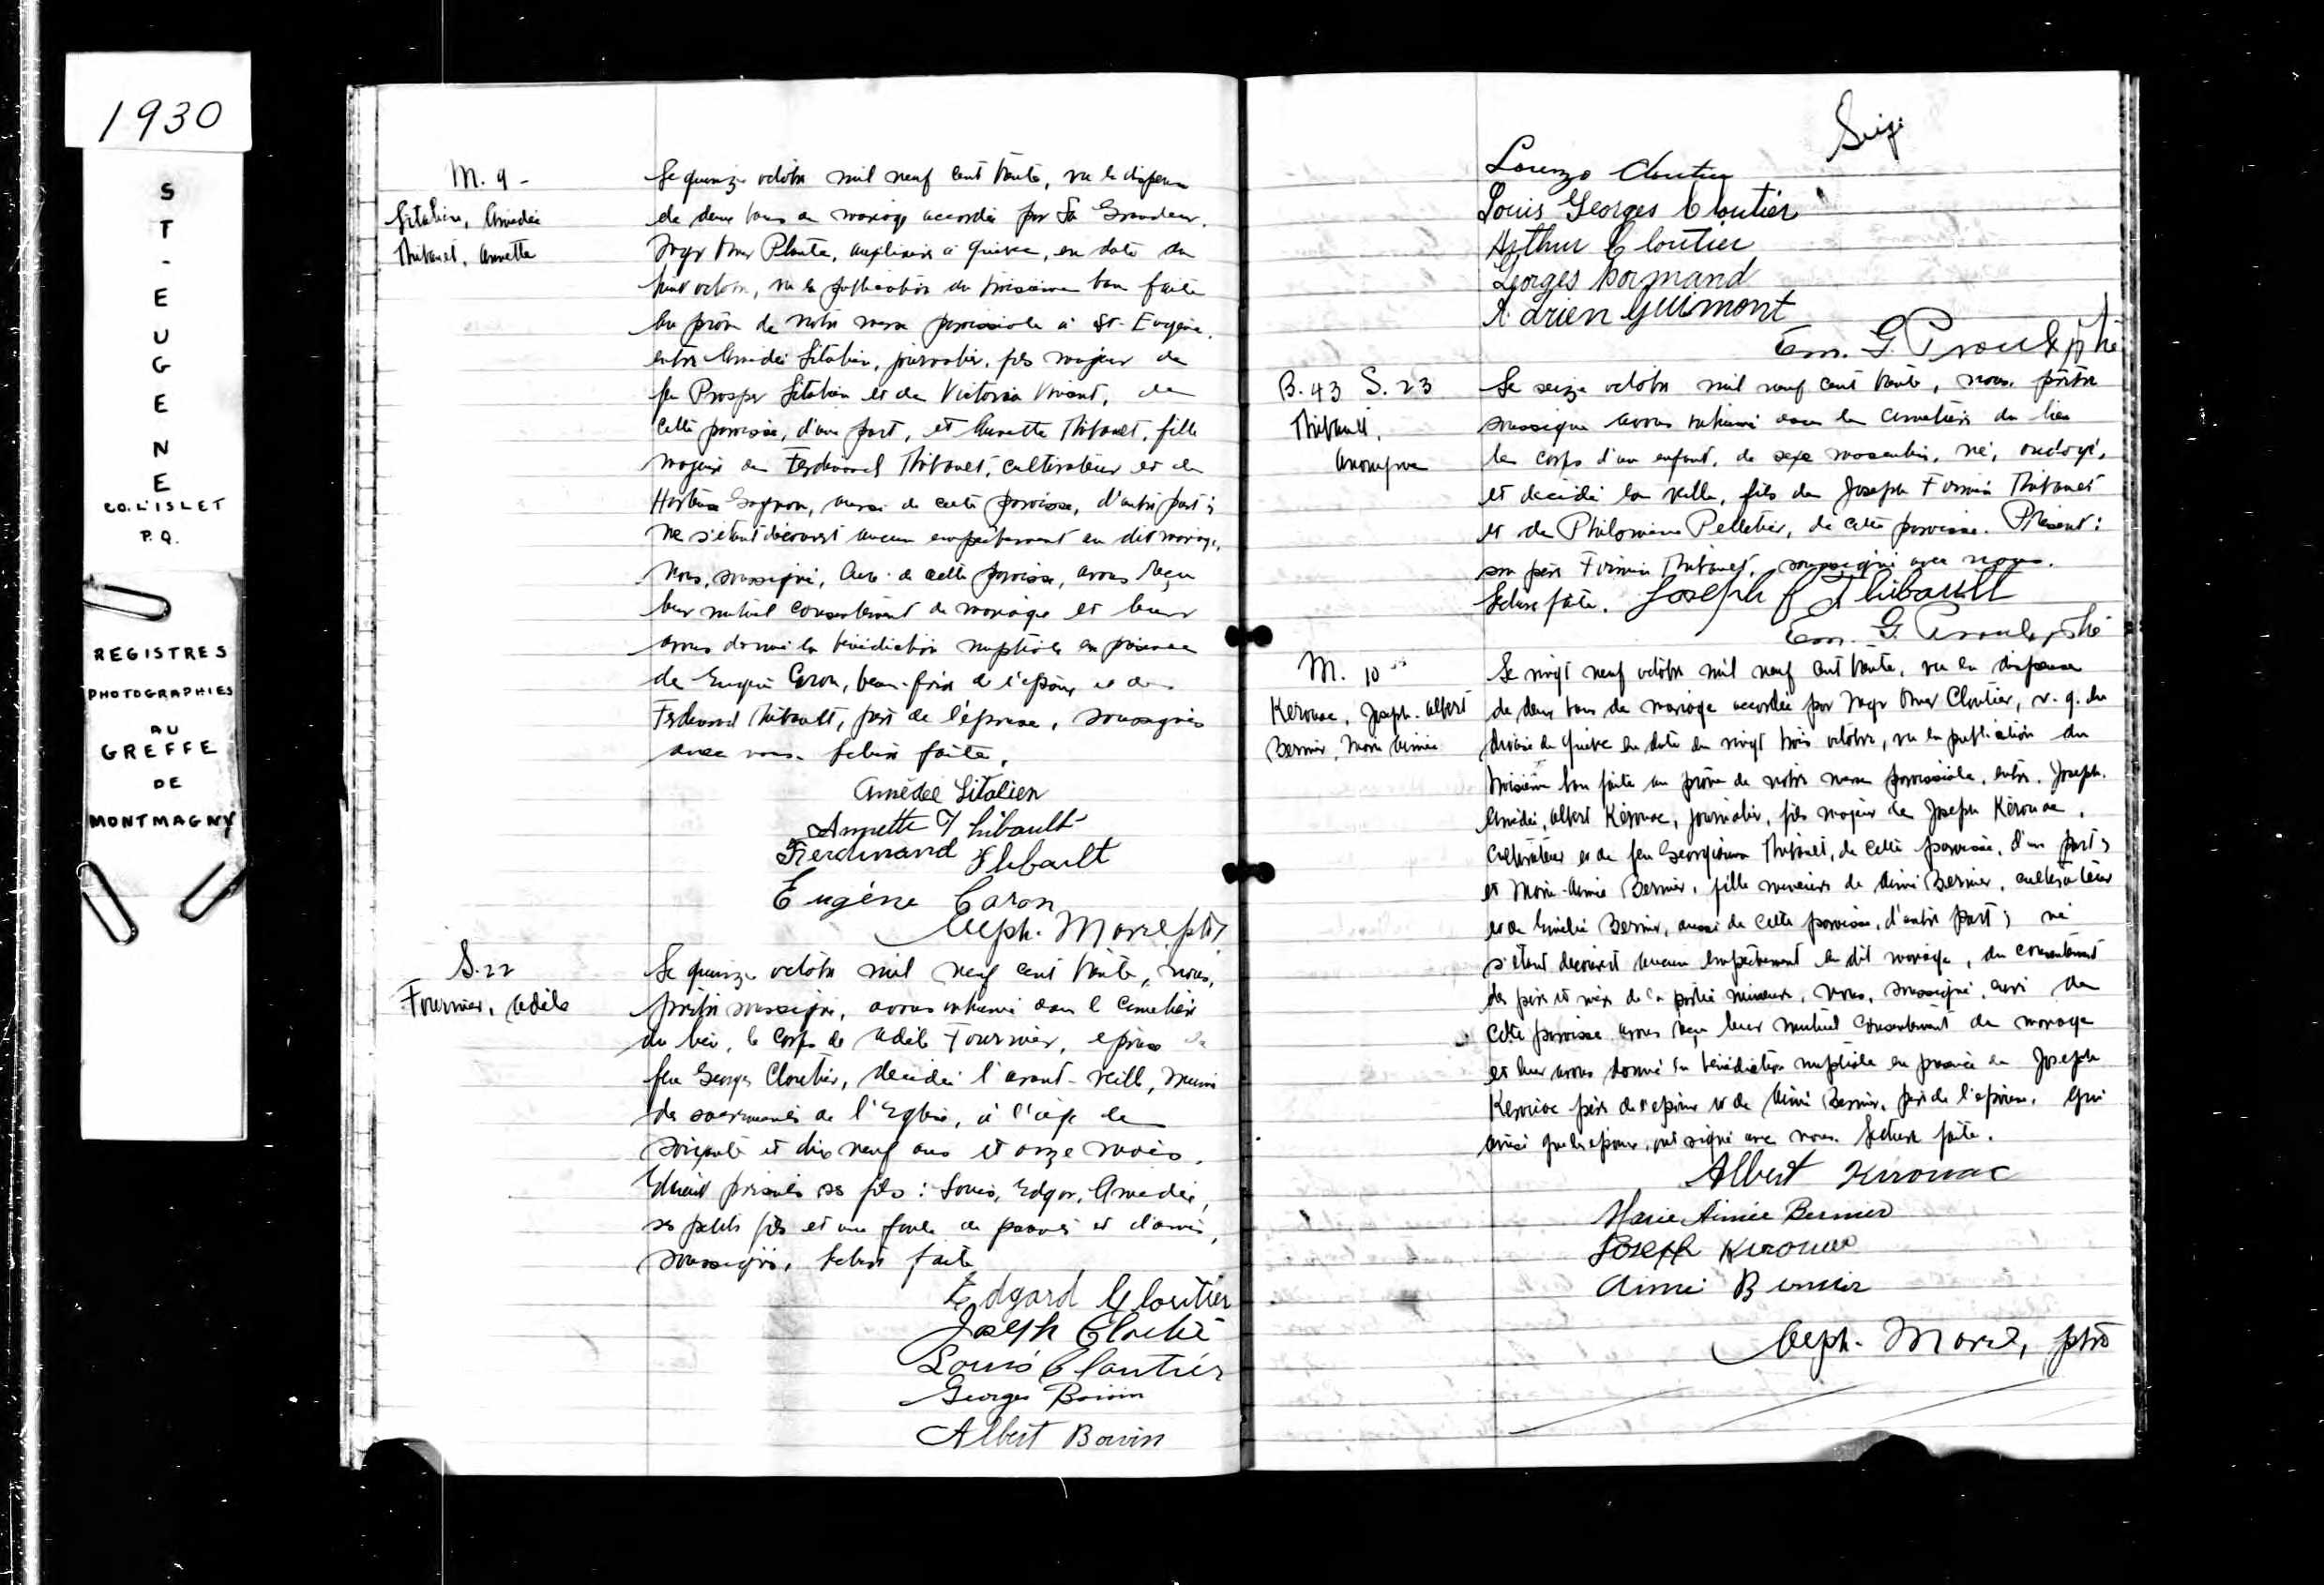 1930
ST-EUGENE
CO. L'ISLET
P.Q.
REGISTRES
PHOTOGRAPHIES
AU
GREFFE
DE
MONTMAGNY
M. 9 -
Litalien, Amédée
Thibault, Annette
Le quinze octobre mil neuf cent trente, vu la dispense
de deux bans de mariage accordée par Sa Grandeur
Mgr Omer Plante, auxiliaire à Québec, en date du
huit octobre, vu la publication du troisième ban faite
au prône de notre messe paroissiale à St. Eugène,
entre Amédée Litalien, journalier, fils majeur de
feu Prosper Litalien et de Victoria, de
cette paroisse, d'une part, et Annette Thibault, fille
majeure de Ferdinand Thibault, cultivateur et de
Gagnon, aussi de cette paroisse, d'autre part;
ne s'étant découvert aucun empêchement au dit mariage,
nous, soussigné, curé de cette paroisse, avons reçu
leur mutuel consentement de mariage et leur
avons donné la bénédiction nuptiale en présence
de Eugène Caron, beau-frère de l'époux et de
Ferdinand Thibault, père de l'épouse, soussignés
avec nous. Lecture faite.
Amédée Litalien
Annette Thibault
Ferdinand Thibault
Eugène Caron
Alph. Morel ptre
S. 22
Fournier, Adèle
Le quinze octobre mil neuf cent trente, nous,
prêtre soussigné, avons inhumé dans le cimetière
du lieu, le corps de Adèle Fournier, épouse de
feu Georges Cloutier, décédée l'avant-veille, munie
des sacrements de l'Eglise, à l'âge de
soixante et dix neuf ans et onze mois.
Etaient présents ses fils: Louis, Edgar, Amédée,
ses petits fils et une foule de parents et d'amis,
soussignés. Lecture faite
Edgard Cloutier
Joseph Cloutier
Louis Cloutier
Georges Boivin
Albert Boivin
Lorenzo Cloutier
Louis Georges Cloutier
Arthur Cloutier
Georges Normand
Adrien Guimont
Em. G. Proulx ptre
B. 43 S. 23
Thibault,
Anonyme
Le seize octobre mil neuf cent trente, nous, prêtre
soussigné avons inhumé dans le cimetière du lieu
le corps d'un enfant, de sexe masculin, né, ondoyé,
et décédé la veille, fils de Joseph Firmin Thibault
et de Philomène Pelletier, de cette paroisse. Présent:
son père Firmin Thibault, soussigné avec nous.
Lecture faite. Joseph F Thibault
Em. G. Proulx, ptre
M. 10
Kérouac, Joseph-Albert
Bernier, Marie Aimée
Le vingt neuf octobre mil neuf cent trente, vu la dispense
de deux bans de mariage accordée par Mgr Omer Cloutier, v. g. du
diocèse de Québec en date du vingt trois octobre, vu la publication du
troisième ban faite au prône de notre messe paroissiale, entre Joseph
Amédée, Albert Kérouac, journalier, fils majeur de Joseph Kérouac,
cultivateur et de feu Georgianna Thibault, de cette paroisse, d'une part;
et Marie-Aimée Bernier, fille mineure de Aimé Bernier, cultivateur
et de Emélie Bernier, aussi de cette paroisse, d'autre part; ne
s'étant découvert aucun empêchement au dit mariage, du consentement
des père et mère de la partie mineure, nous, soussigné, curé de
cette paroisse avons reçu leur mutuel consentement de mariage
et leur avons donné la bénédiction nuptiale en présence de Joseph
Kérouac père de l'époux et de Aimé Bernier, père de l'épouse, qui
ainsi que les époux, ont signé avec nous. Lecture faite.
Albert Kirouac
Marie Aimée Bernier
Joseph Kirouac
Aimé Bernier
Alph. Morel, ptre